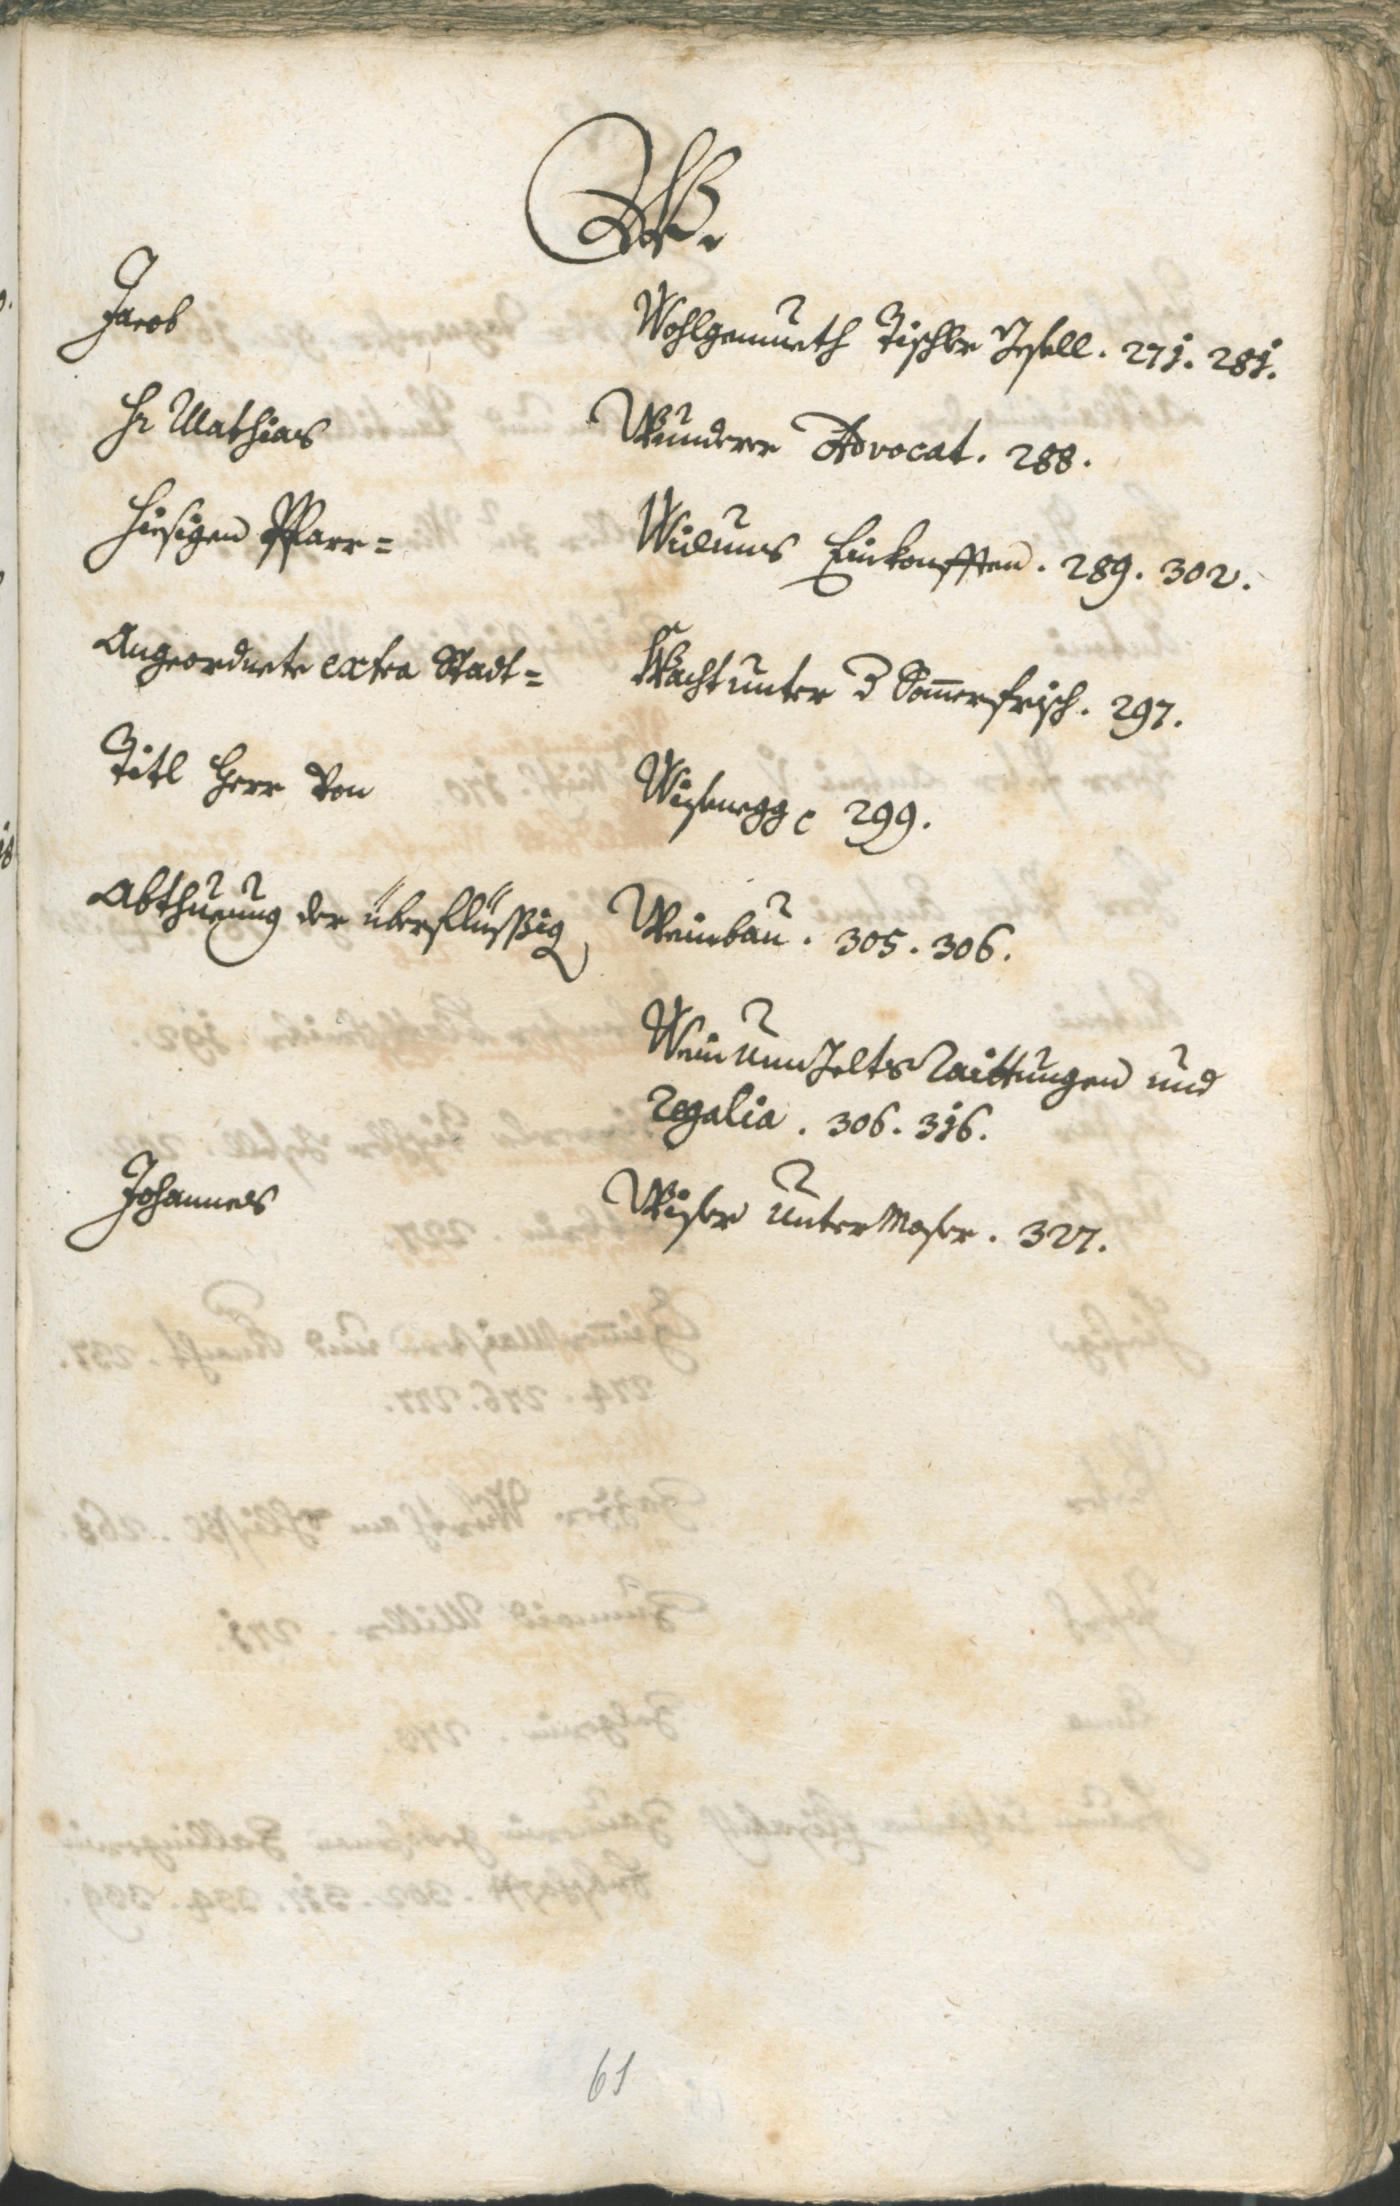 W.
Jacob Wohlgemueth Tischler Gesell. 271. 281.
Hr Mathias Wunderer Advocat. 288.
Hiesigen Pfarr= Widums Einkonfften. 289. 302.
Angeordnete extra Stadt= Wacht unter d Somerfrisch. 297.
Titl Herr von Wisenegg 299.
Abthueung der überflüssig Weinbau. 305. 306.
Wein Umgelts Raittungen und
Regalia. 306. 316.
Johannes Wiser Unter Moser. 327.
61